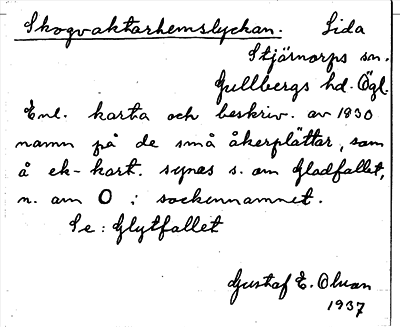 Skogvaktarhemslyckan. Lida
Stjärnorps sn.
Gullbergs hd. Ögl.
Enl. karta och beskriv. av 1930
namn på de små åkerplättar, som
å ek-kart. synes s. om Gladfallet,
n. om O i sockennamnet.
Se: Glytfallet
Gustaf E. Olsson
1937